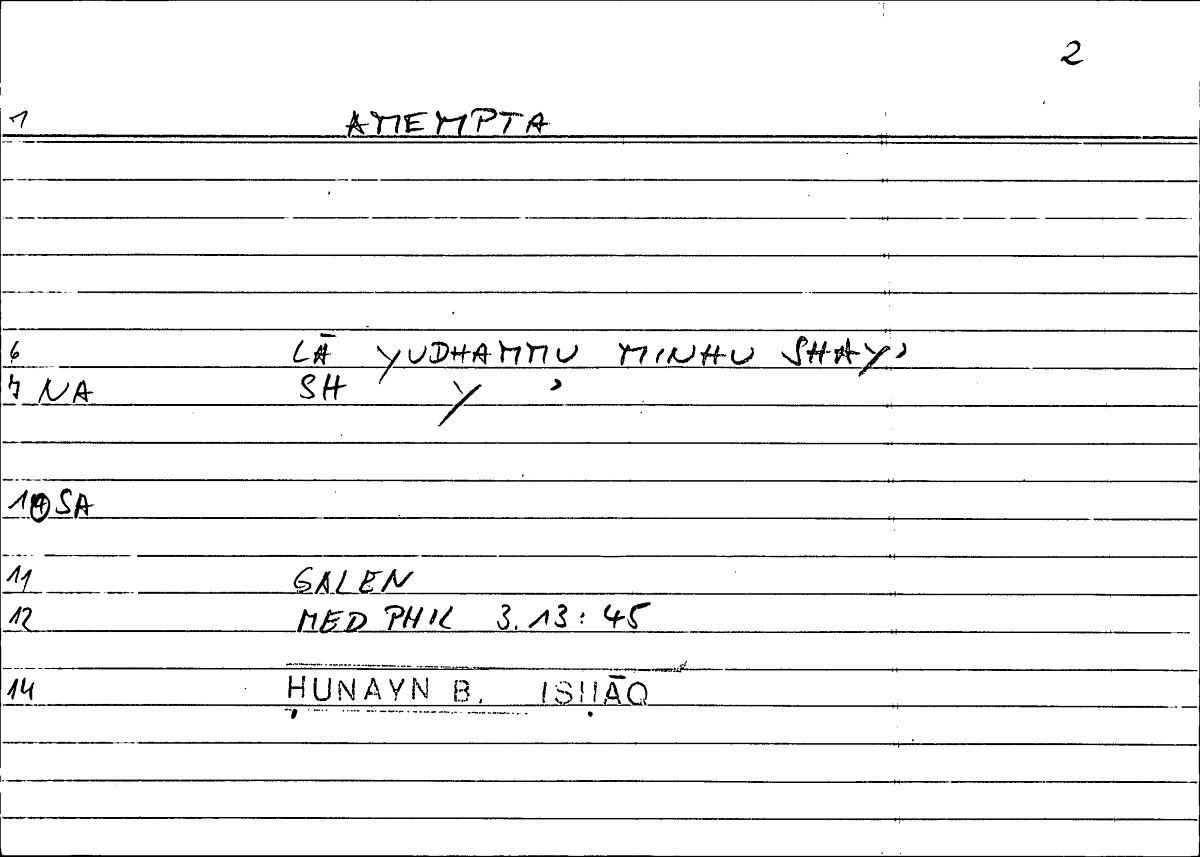 2
1 AMEMPTA
6 LĀ YUDHAMMU MINHU SHAYʾ
7 NA SH Y ʾ
10 SA
11 GALEN
12 MED PHIL 3.13:45
14 ḤUNAYN B. ISḤĀQ